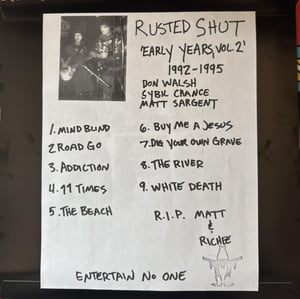 RUSTED SHUT
'EARLY YEARS, VOL. 2'
1992-1995
DON WALSH
SYBIL CHANCE
MATT SARGENT
1. MIND BLIND
2 ROAD GO
3. ADDICTION
4. 99 TIMES
5. THE BEACH
6. BUY ME A JESUS
7. DIG YOUR OWN GRAVE
8. THE RIVER
9. WHITE DEATH
R.I.P. MATT
&
RICHEE
ENTERTAIN NO ONE